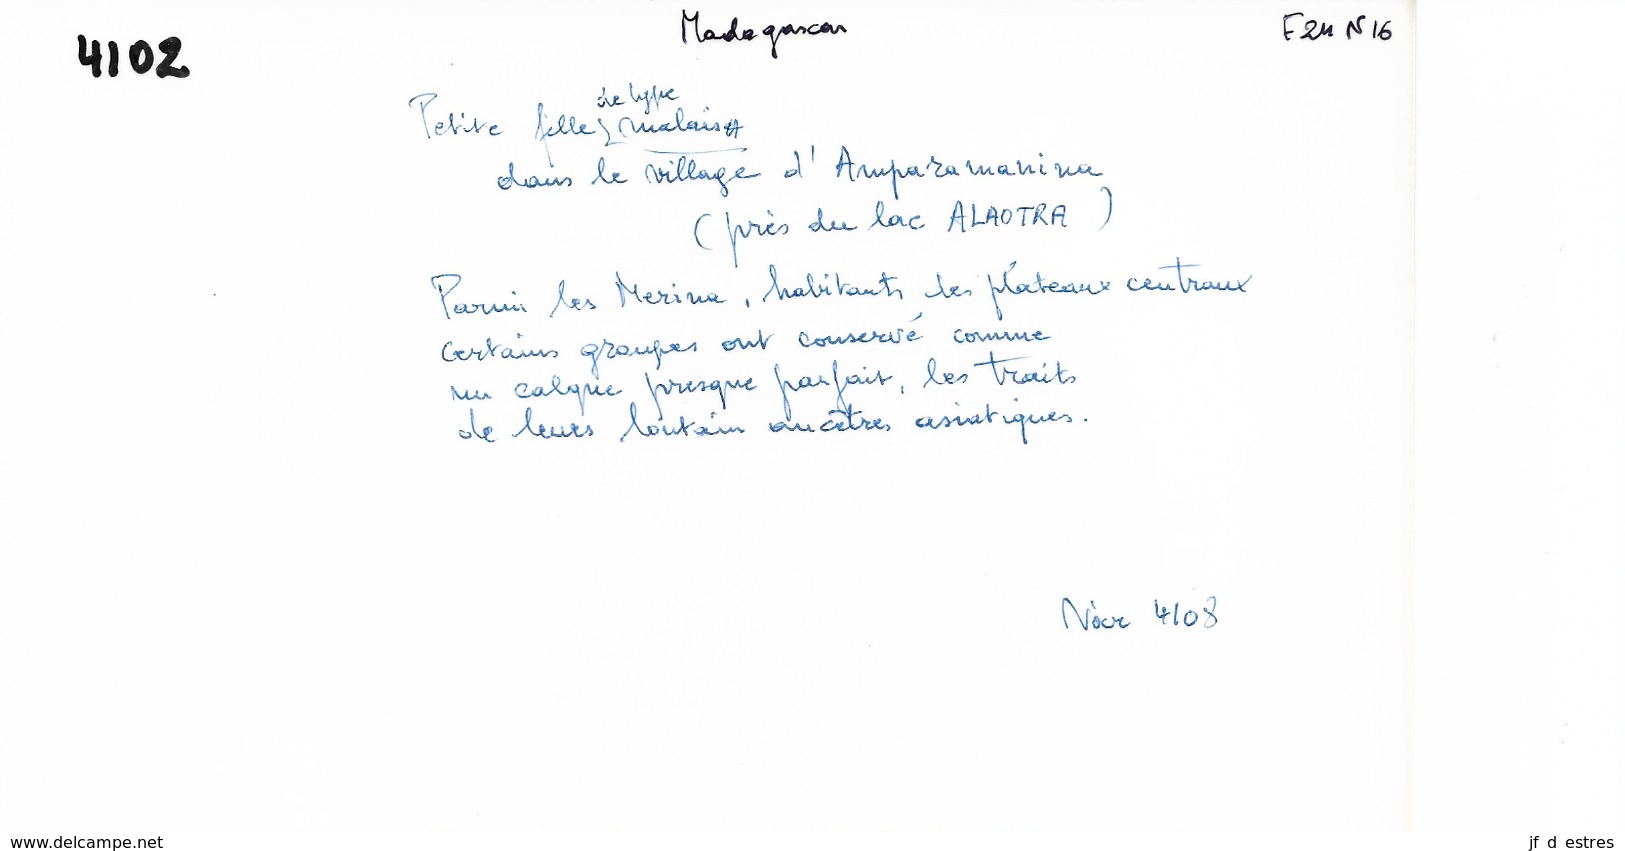 4102
Madagascar
F24 N16
de type
Petite fille malais
dans le village d'Amparamanina
(près du lac ALAOTRA)
Parmi les Merina, habitants des plateaux centraux
certains groupes ont conservé comme
un calque presque parfait, les traits
de leurs lointain ancêtres asiatiques.
4108
www.delcampe.net
jf d estres